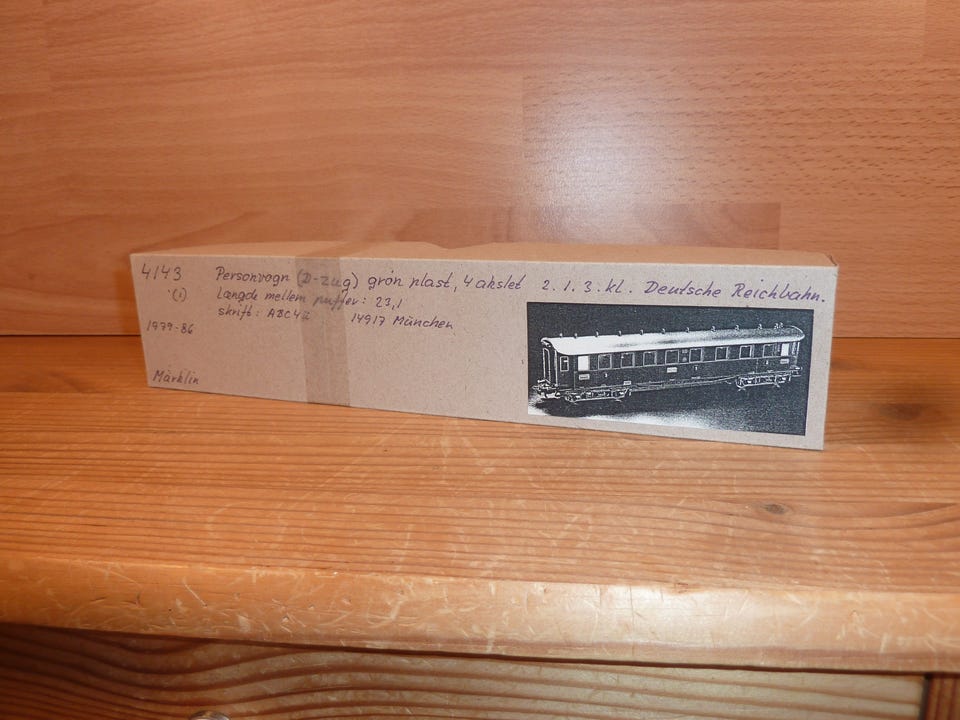 4143
(1)
1979-86
Märklin
Personvogn (D-zug) grøn plast, 4 akslet
Længde mellem puffer: 23,1
skrift: ABC4ü 14917 München
2. 1. 3. kl. Deutsche Reichbahn.